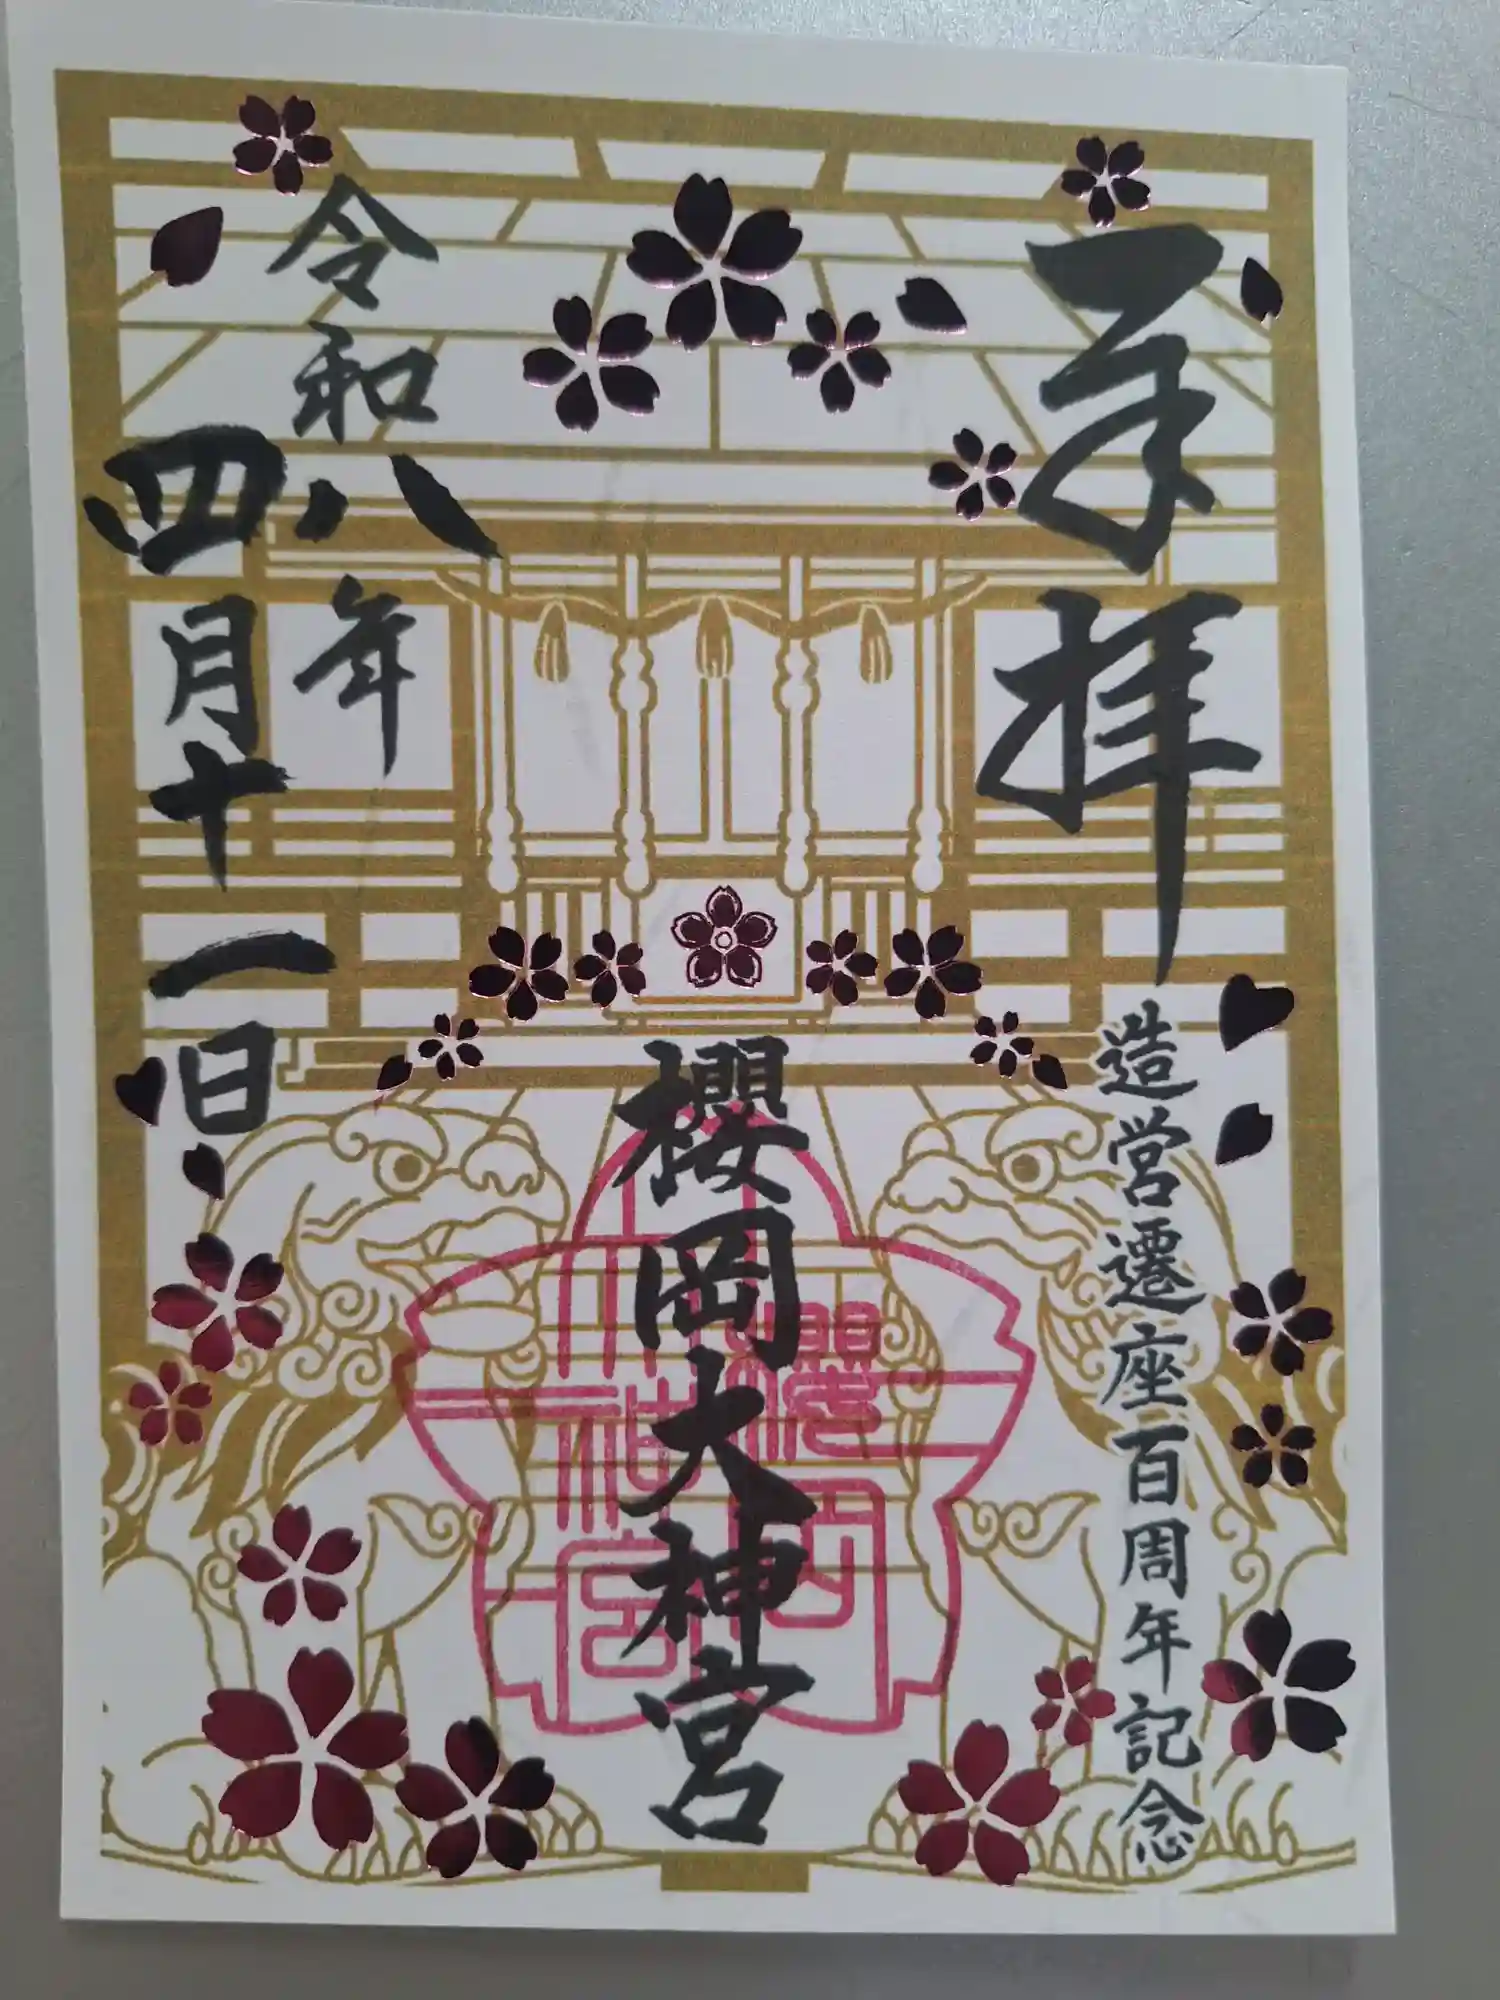 奉拝
造営遷座百周年記念
櫻岡大神宮
櫻岡
大神宮
令和八年
四月十一日